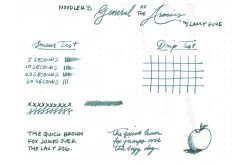 NOODLER'S General OF THE Armies
BY LARRY POST
Smear Test
Drip Test
5 SECONDS
10 SECONDS
20 SECONDS
60 SECONDS
XXXXXXXXXX
THE QUICK BROWN
FOX JUMPS OVER
THE LAZY DOG.
The quick brown
fox jumps over
the lazy dog.